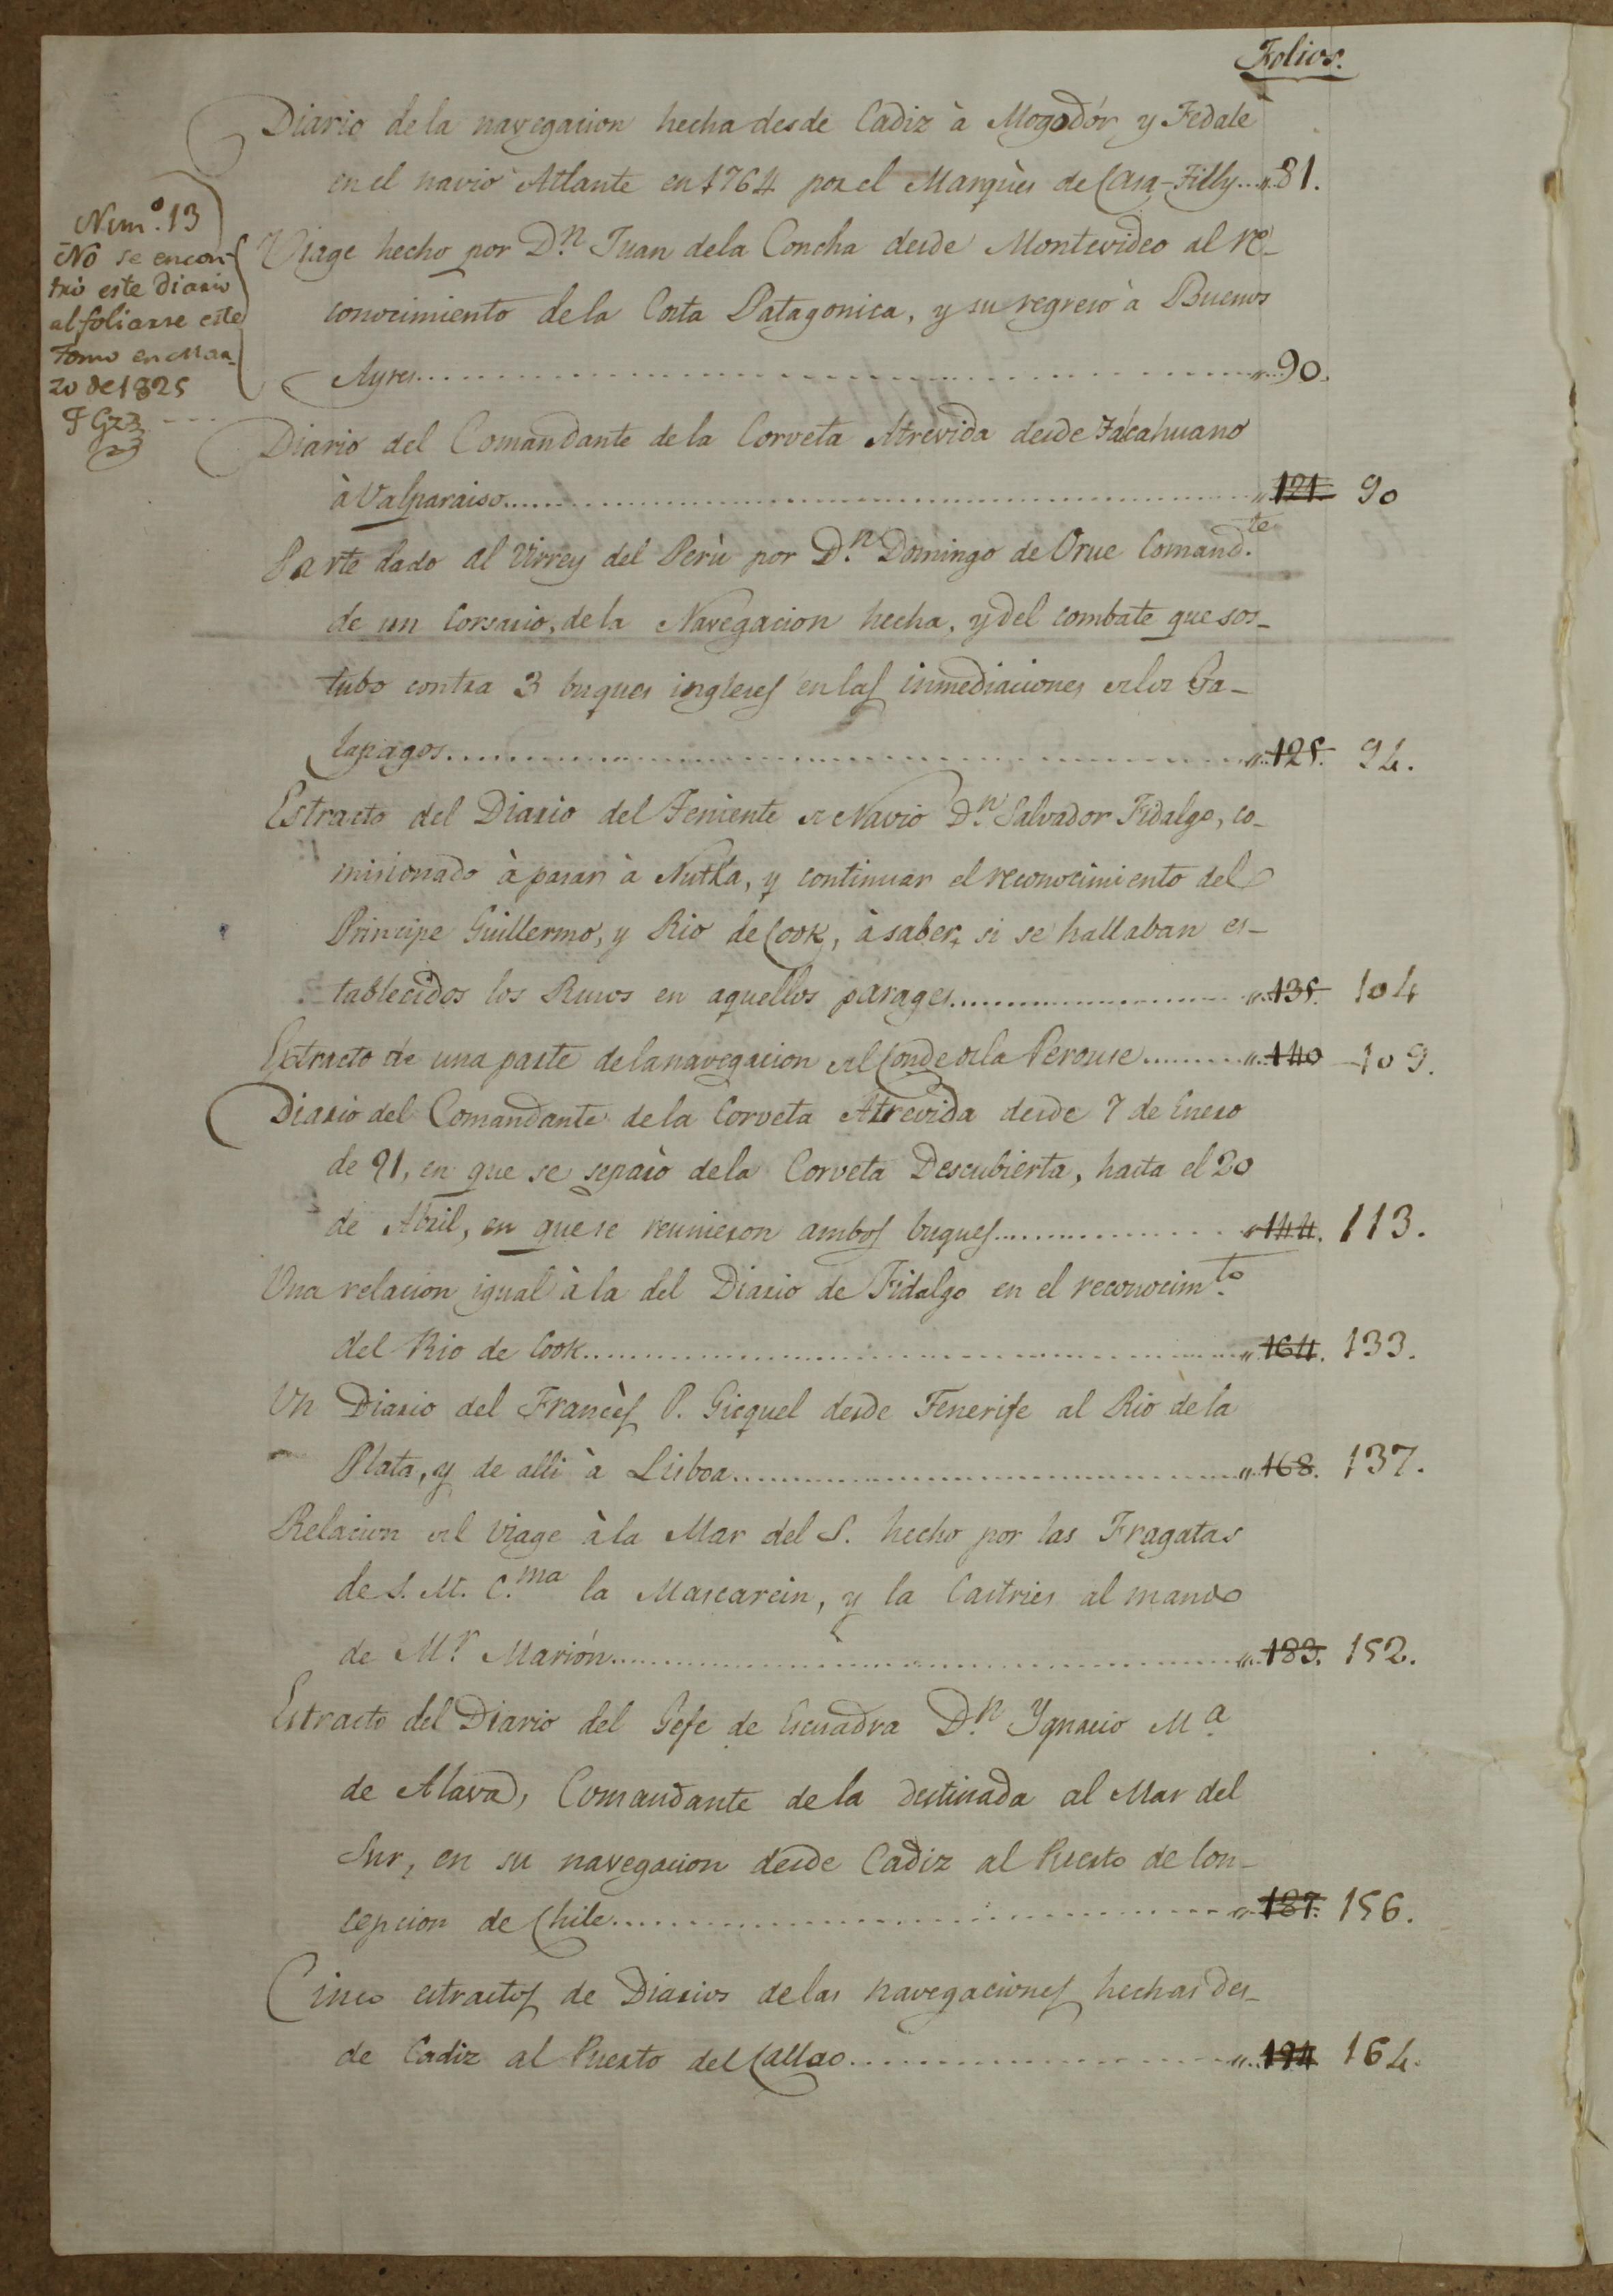 Folios.
Diario de la navegacion hecha desde Cadiz à Mogadór y Fedale
en el navio Atlante en 1764 por el Marquès de Casa-Tilly....81.
Num.º 13
No se encon-
trò este diario
al foliarse este
Tomo en Mar-
zo de 1825
Viage hecho por D.n Juan de la Concha desde Montevideo al re-
conocimiento de la Costa Patagonica, y su regreso à Buenos
Ayres........90.
Diario del Comandante de la Corveta Atrevida desde Talcahuano
à Valparaiso........121. 90
Parte dado al Virrey del Perù por D.n Domingo de Orue Comand.te
de un Corsario, de la Navegacion hecha, y del combate que sos-
tubo contra 3 buques ingleses en las inmediaciones de los Ga-
lapagos........125. 94.
Estracto del Diario del Teniente de Navio D.n Salvador Fidalgo, co-
misionado à pasar à Nutka, y continuar el reconocimiento del
Principe Guillermo, y Rio de Cook, à saber, si se hallaban es-
tablecidos los Rusos en aquellos parages........135. 104
Extracto de una parte de la navegacion del Conde de la Perouse........140 109.
Diario del Comandante de la Corveta Atrevida desde 7 de Enero
de 91, en que se separò de la Corveta Descubierta, hasta el 20
de Abril, en que se reunieron ambos buques........144. 113.
Una relacion igual à la del Diario de Fidalgo en el reconocim.to
del Rio de Cook........164. 133.
Un Diario del Francès P. Gicquel desde Tenerife al Rio de la
Plata, y de alli à Lisboa........168. 137.
Relacion del viage à la Mar del S. hecho por las Fragatas
de S. M. C.ma la Mascarein, y la Castries al mando
de M.r Marión........183. 152.
Estracto del Diario del Gefe de Escuadra D.n Ygnacio M.a
de Alava, Comandante de la destinada al Mar del
Sur, en su navegacion desde Cadiz al Puerto de Con-
cepcion de Chile........187. 156.
Cinco estractos de Diarios de las navegaciones hechas des-
de Cadiz al Puerto del Callao........194 164.